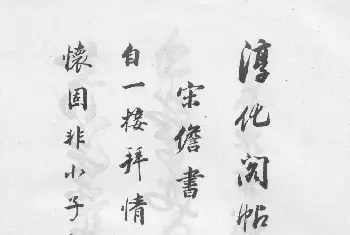 淳化阁帖
宋儋書
自一接拜情
懷固非小子